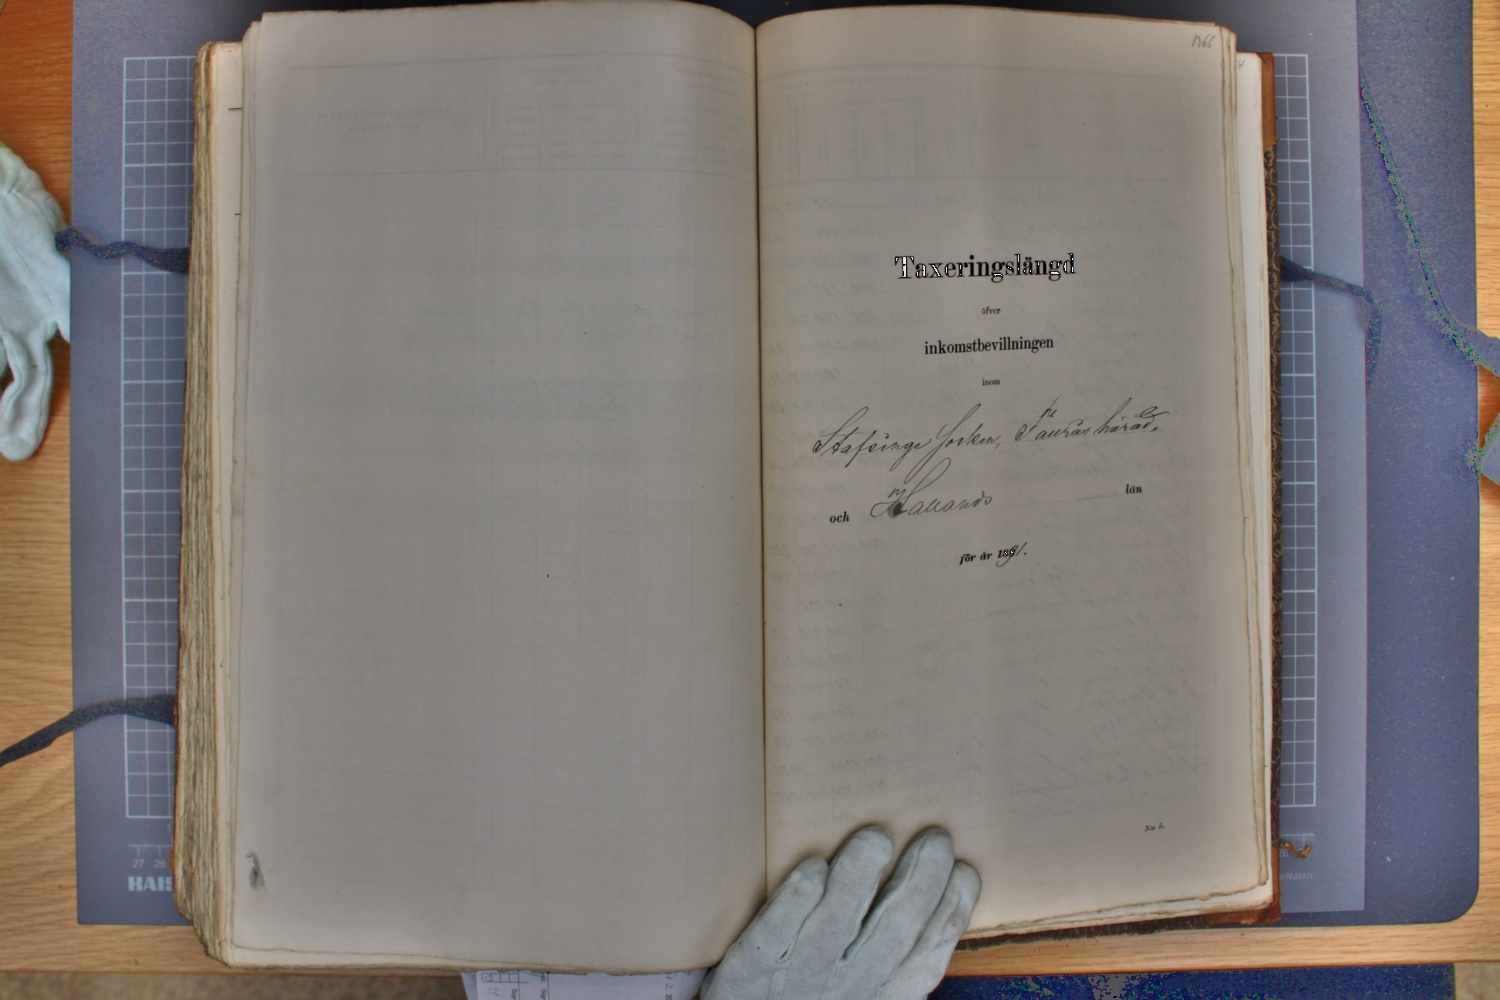 1466
Taxeringslängd
öfver
inkomstbevillningen
inom
Stafsinge socken, Faurås härad,
och Hallands län
för år 1891.
No 5.
27 26